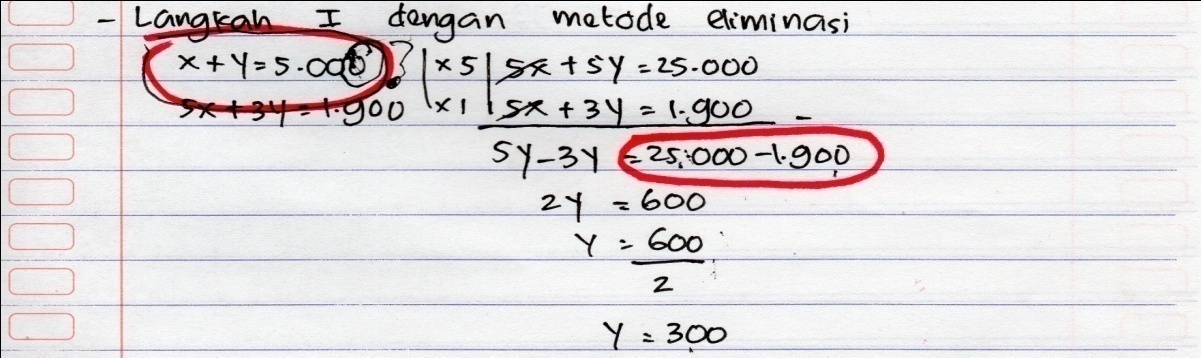 - Langkah I dengan metode eliminasi
x + y = 5.000 ? | x 5 | 5x + 5y = 25.000
5x + 3y = 1.900 | x 1 | 5x + 3y = 1.900 -
5y - 3y = 25.000 - 1.900
2y = 600
y = 600
2
y = 300